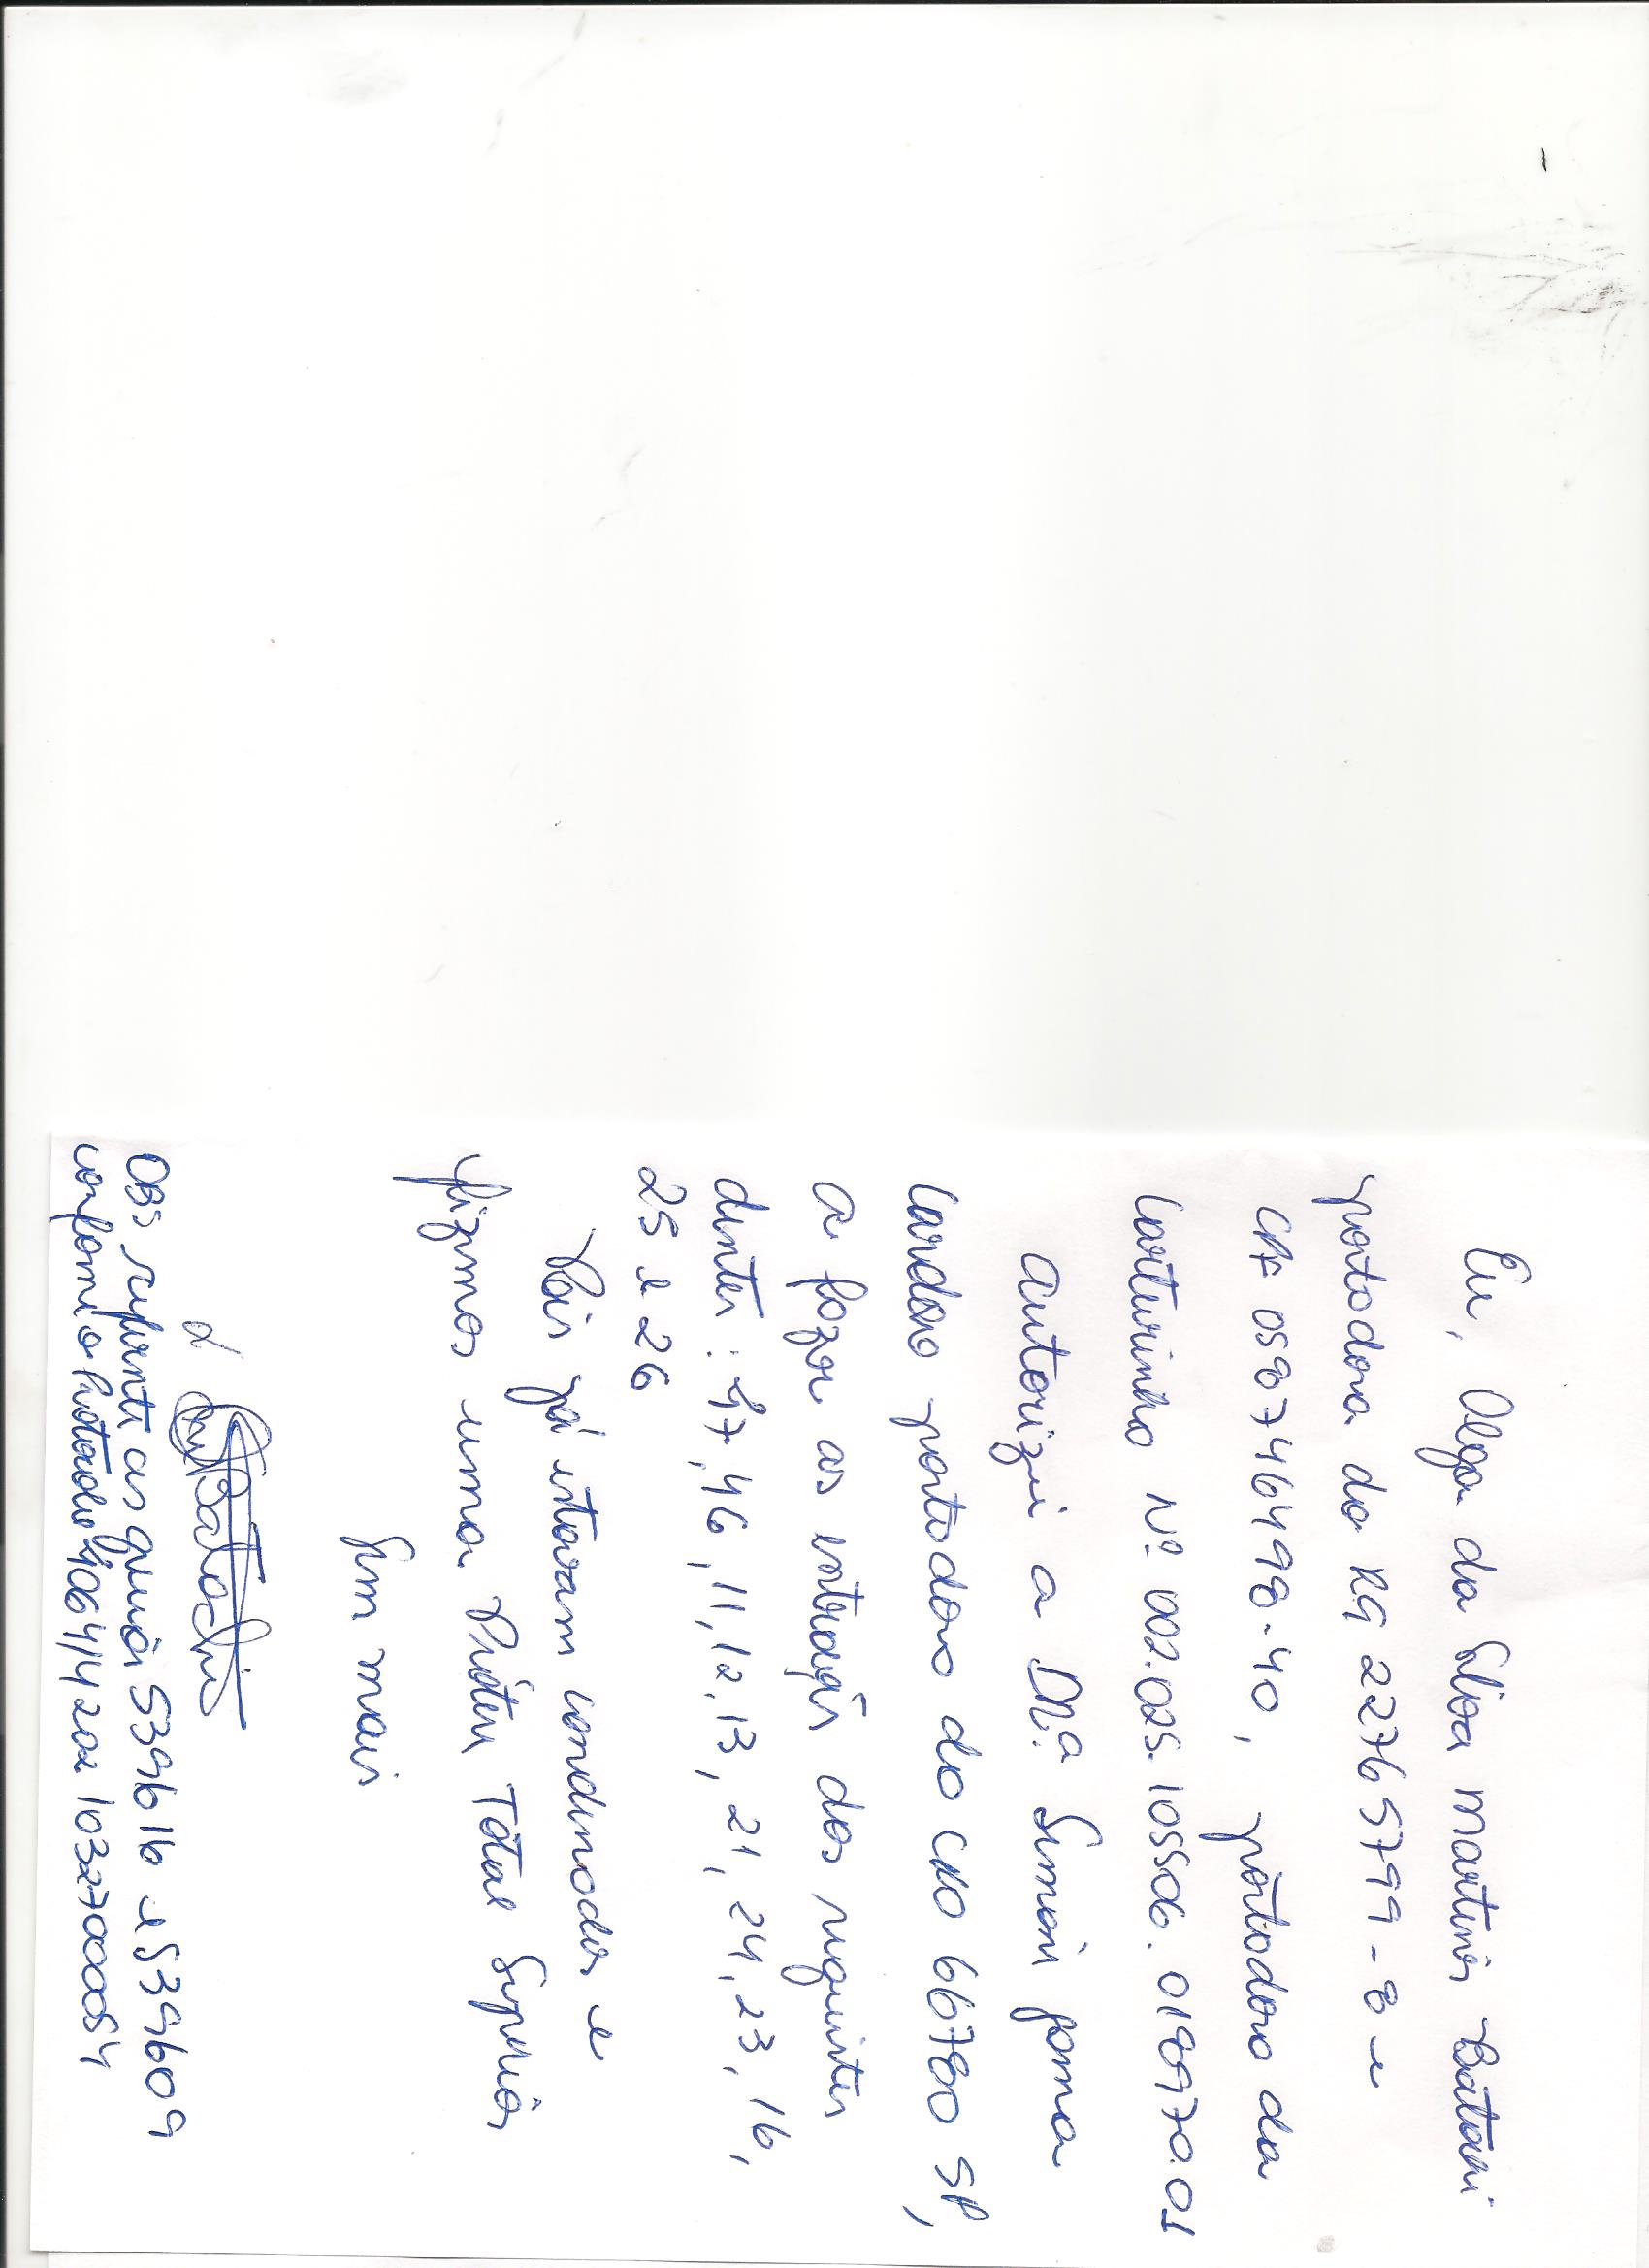 Eu, Olga da Silva Martins
portadora do RG 22765799-8 e
CPF 058746498-40, portadora da
Carteirinha Nº 002.025.105506.018970.01
autorizei a Dr.a Simoni
portadora do CRO 66780 SP,
a fazer as extrações dos seguintes
dentes: 47, 46, 11, 12, 13, 21, 24, 23, 16,
25 e 26
Pois já estavam condenados e
fizemos uma Prótese Total Superior
Sem mais
OBS referente as guias 539616 e 539609
conforme o Protocolo